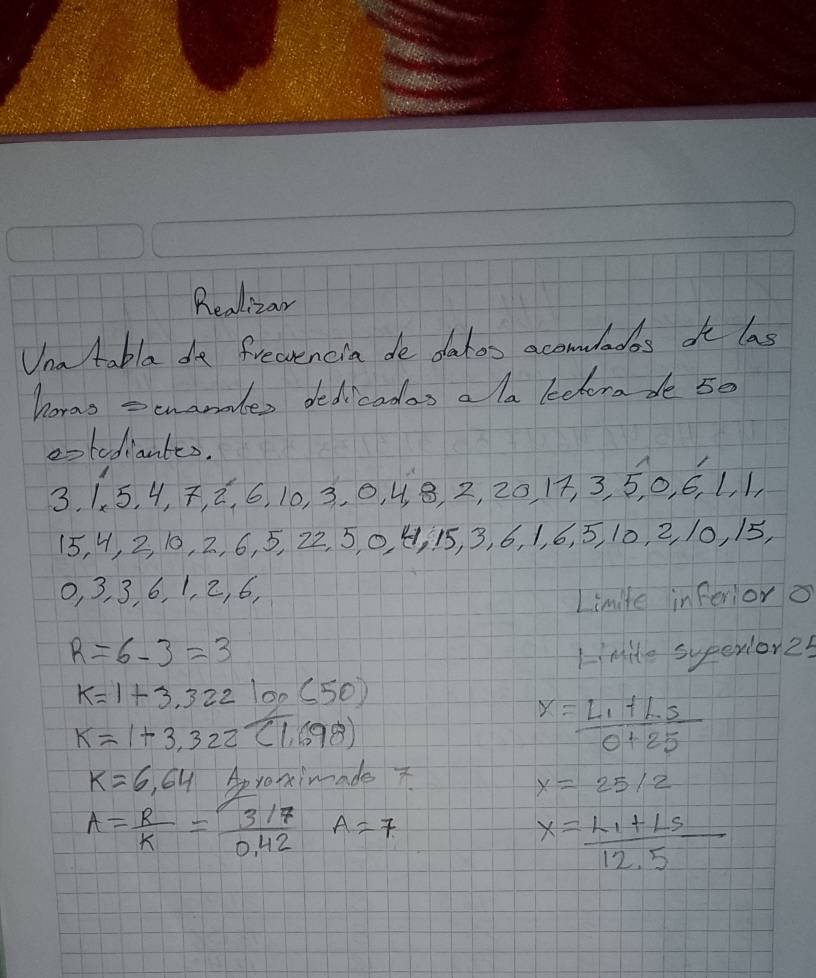 Realizar
Una tabla de frecuencia de datos acomulados de las
horas semanales dedicadas a la lectura de 50
estudiantes.
3, 1, 5, 4, 7, 2, 6, 10, 3, 0, 4, 8, 2, 20, 17, 3, 5, 0, 6, 1, 1,
15, 4, 2, 10, 2, 6, 5, 22, 5, 0, 4, 15, 3, 6, 1, 6, 5, 10, 2, 10, 15,
0, 3, 3, 6, 1, 2, 6,
Limite inferior 0
Limite superior 25
R = 6 - 3 = 3
K = 1 + 3,322 log (50)
K = 1 + 3,322 (1,698)
K = 6,64 Aproximado 7
A = R/K = 3/7 / 0,42 A = 7
x = Li + Ls / 0 + 25
x = 25 / 2
x = Li + Ls / 12.5